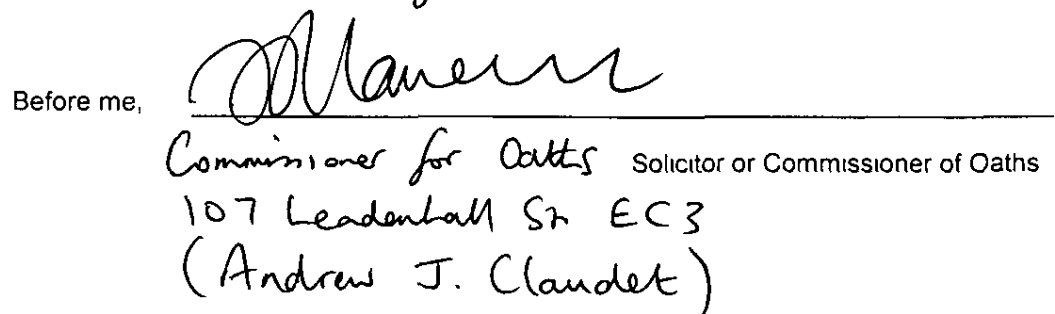 Before me,
Commissioner for Oaths Solicitor or Commissioner of Oaths
107 Leadenhall St EC3
(Andrew J. Claudet)